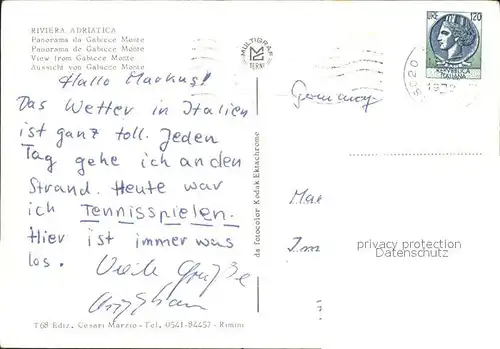 RIVIERA ADRIATICA
Panorama da Gabicce Monte
Panorama de Gabicce Monte
View from Gabicce Monte
Aussicht von Gabicce Monte
MULTIGRAF
TERNI
LIRE 120
REPUBBLICA
ITALIANA
Hallo Markus!
Das Wetter in Italien
ist ganz toll. Jeden
Tag gehe ich an den
Strand. Heute war
ich Tennisspielen.
Hier ist immer was
los. Viele Grüße
Germany
da fotocolor Kodak Ektachrome
privacy protection
Datenschutz
T68 Ediz. Cesari Marzio - Tel. 0541-84457 - Rimini